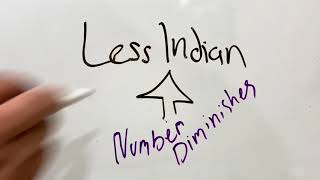 Less Indian
Number
Diminishes